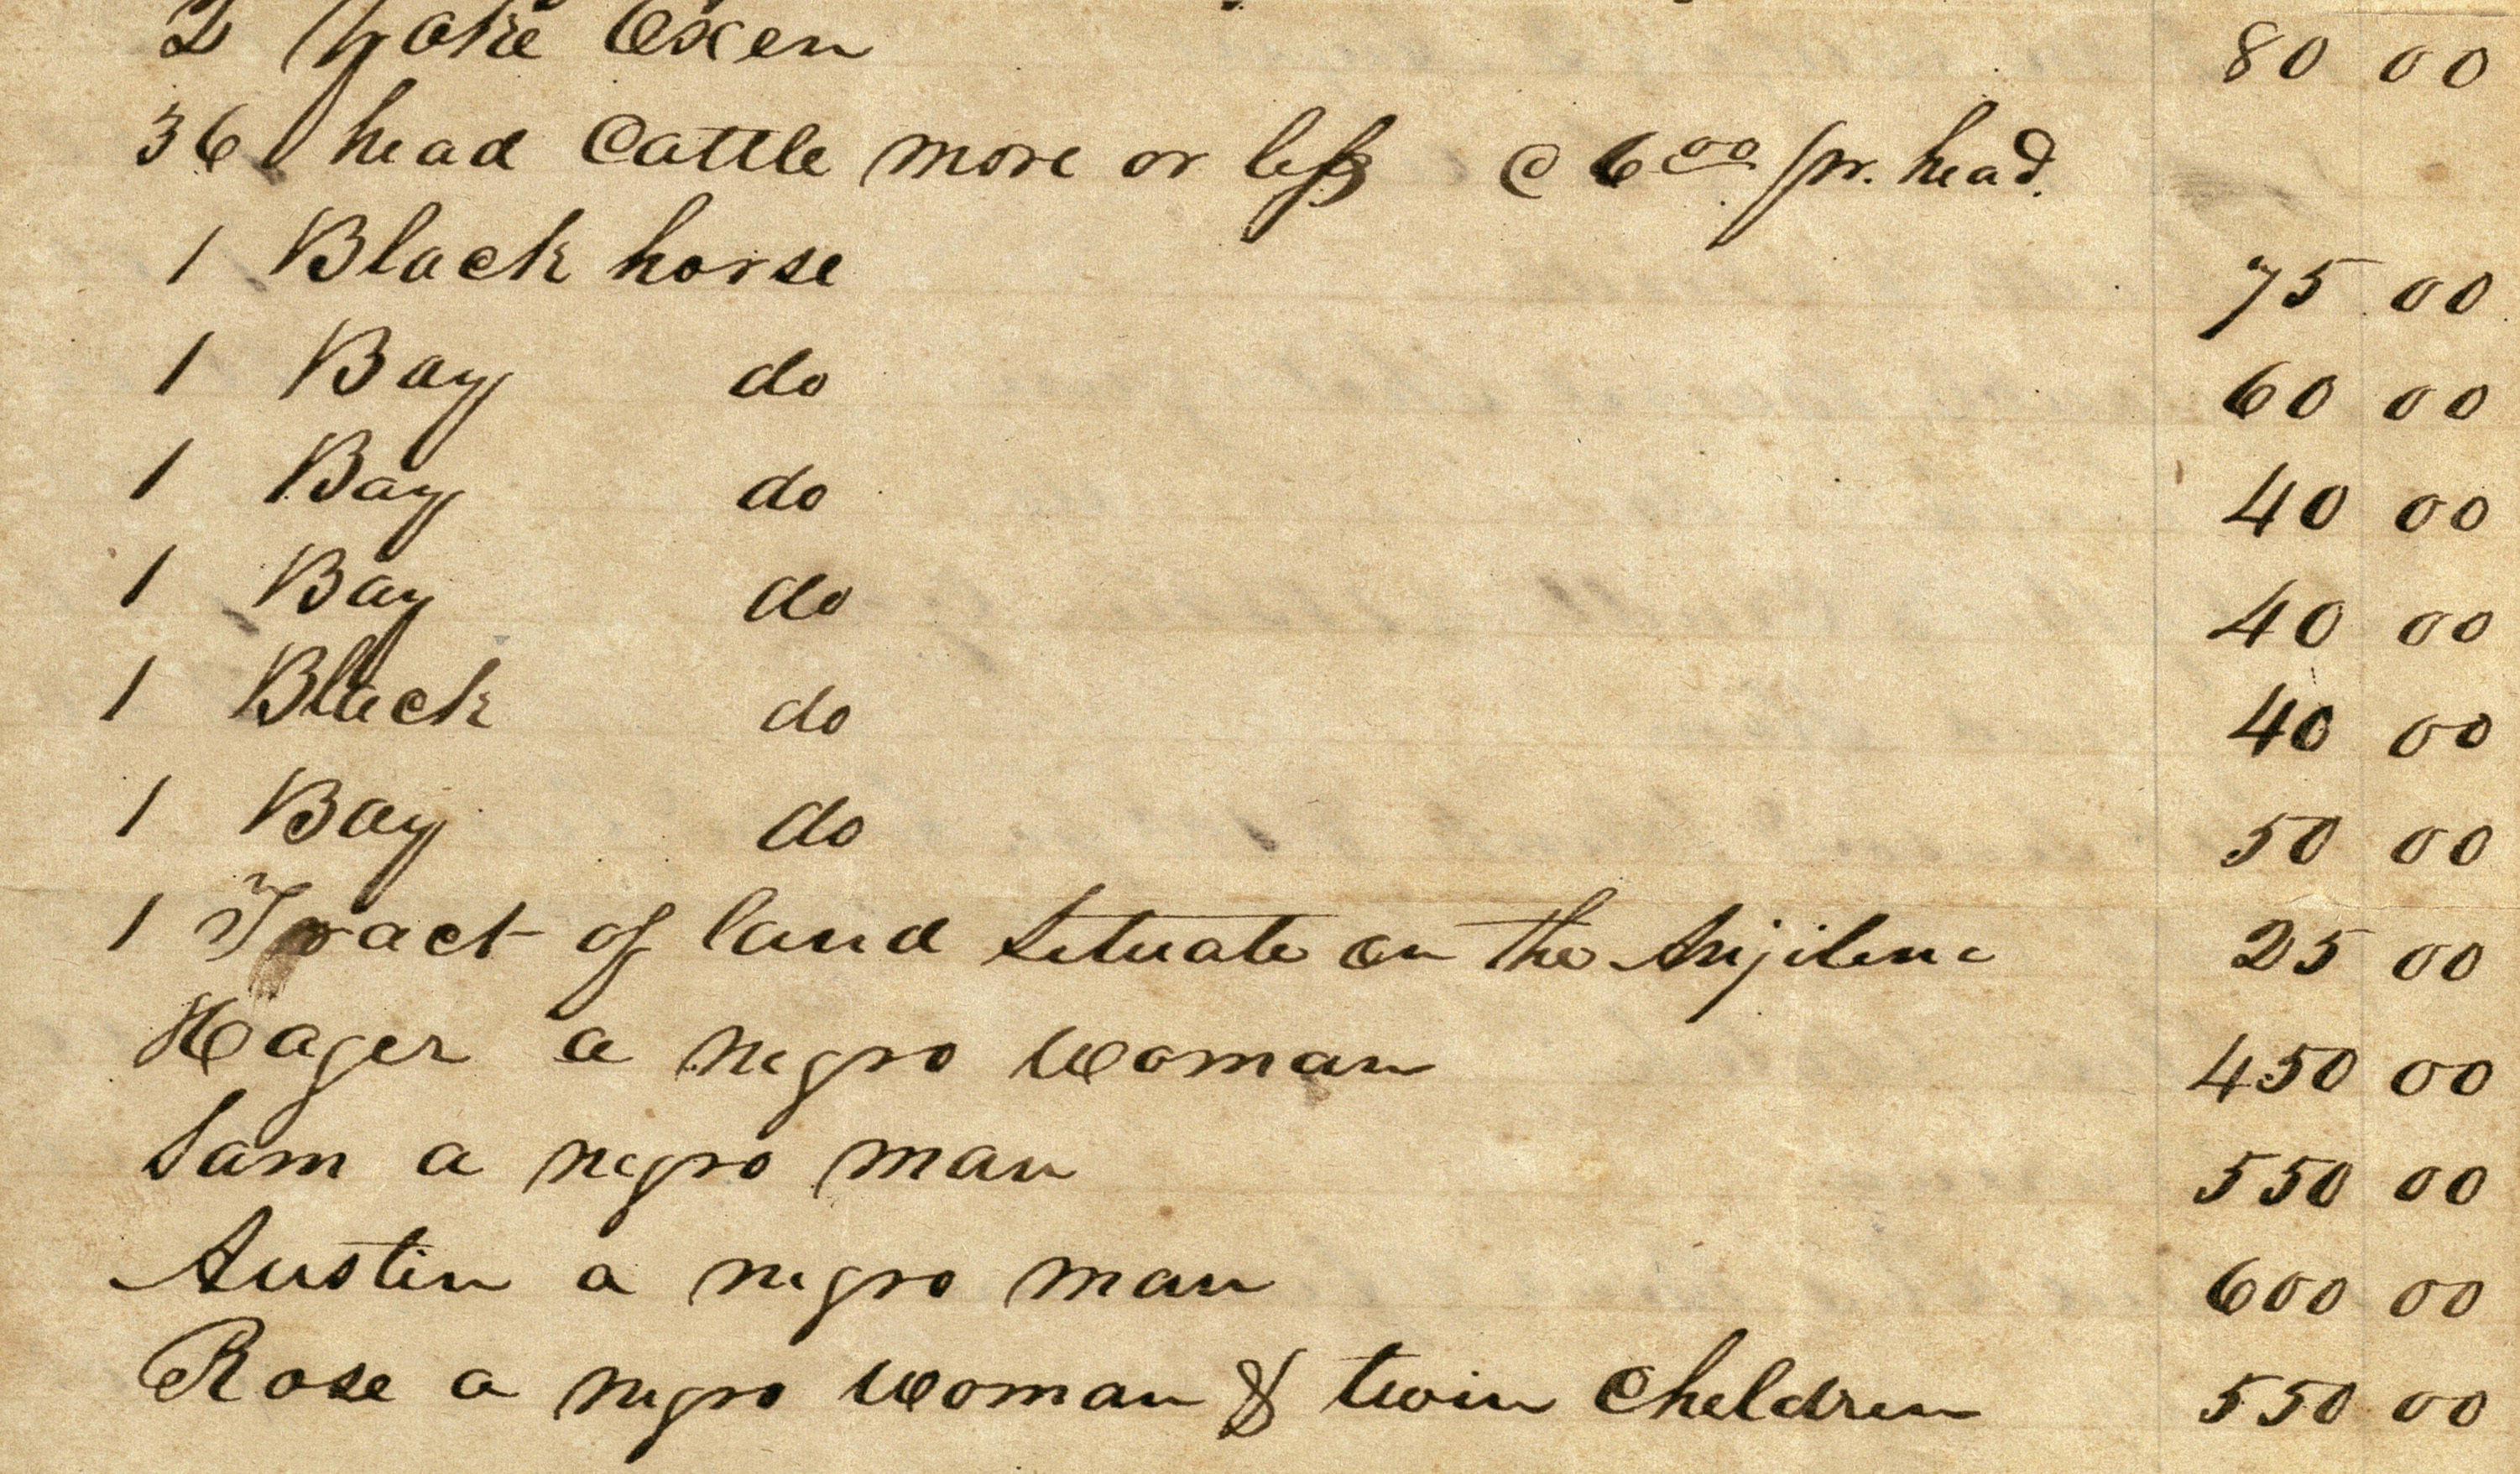 2 Yoke Oxen 80 00
36 head Cattle more or less @ 6 00 pr. head.
1 Black horse 75 00
1 Bay do 60 00
1 Bay do 40 00
1 Bay do 40 00
1 Black do 40 00
1 Bay do 50 00
1 Tract of land Situate on the 25 00
Hager a negro woman 450 00
Sam a negro man 550 00
Austin a negro man 600 00
Rose a negro woman & twin Children 550 00